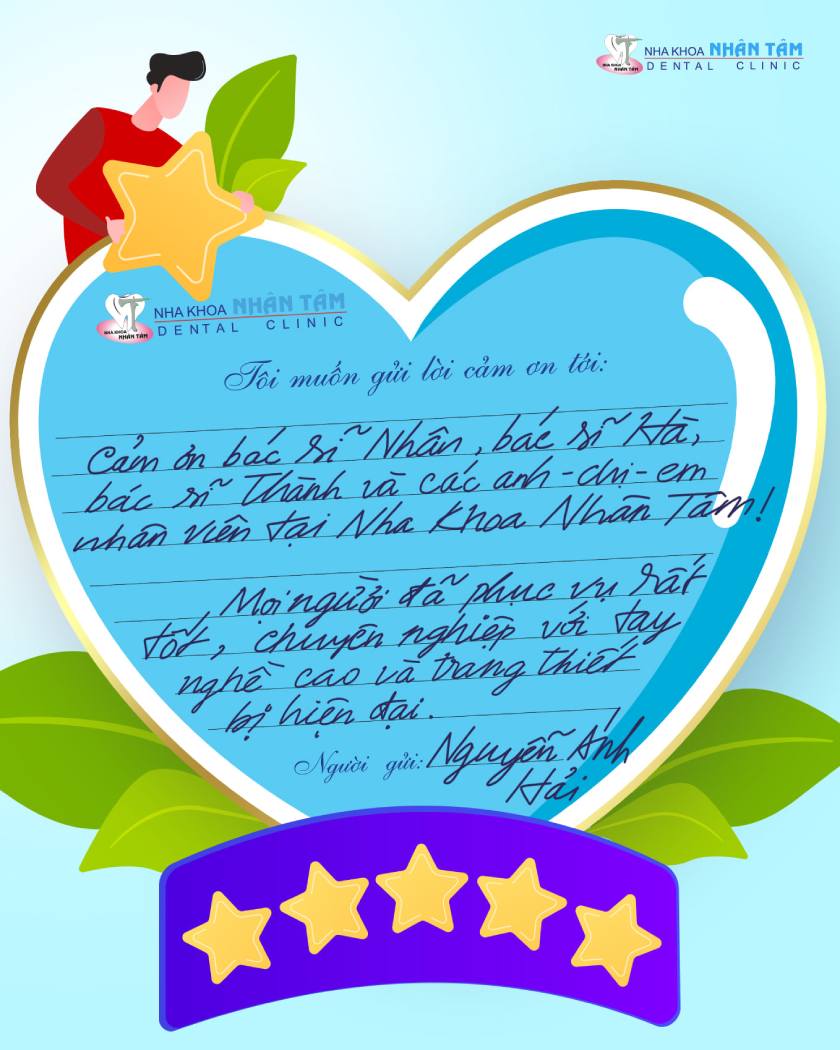 NHA KHOA NHÂN TÂM
DENTAL CLINIC
NHA KHOA
NHÂN TÂM
NHA KHOA NHÂN TÂM
DENTAL CLINIC
NHA KHOA
NHÂN TÂM
Tôi muốn gửi lời cảm ơn tới:
Cảm ơn bác sĩ Nhân, bác sĩ Hà,
bác sĩ Thành và các anh-chị-em
nhân viên tại Nha Khoa Nhân Tâm!
Mọi người đã phục vụ rất
tốt, chuyên nghiệp với tay
nghề cao và trang thiết
bị hiện đại.
Người gửi: Nguyễn Ánh
Hải